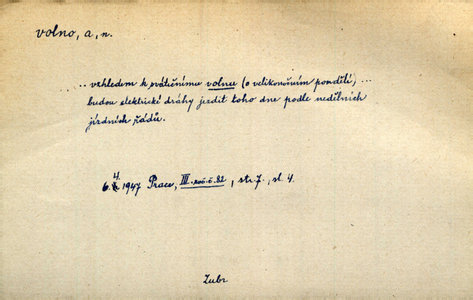 volno, a, n.
..... vzhledem k svátečnímu volnu (o velikonočním pondělí) ...
budou elektrické dráhy jezdit toho dne podle nedělních
jízdních řádů.
4.
6. 1947 Práce, III. roč. č. 82, str. 7., sl. 4.
Zubr